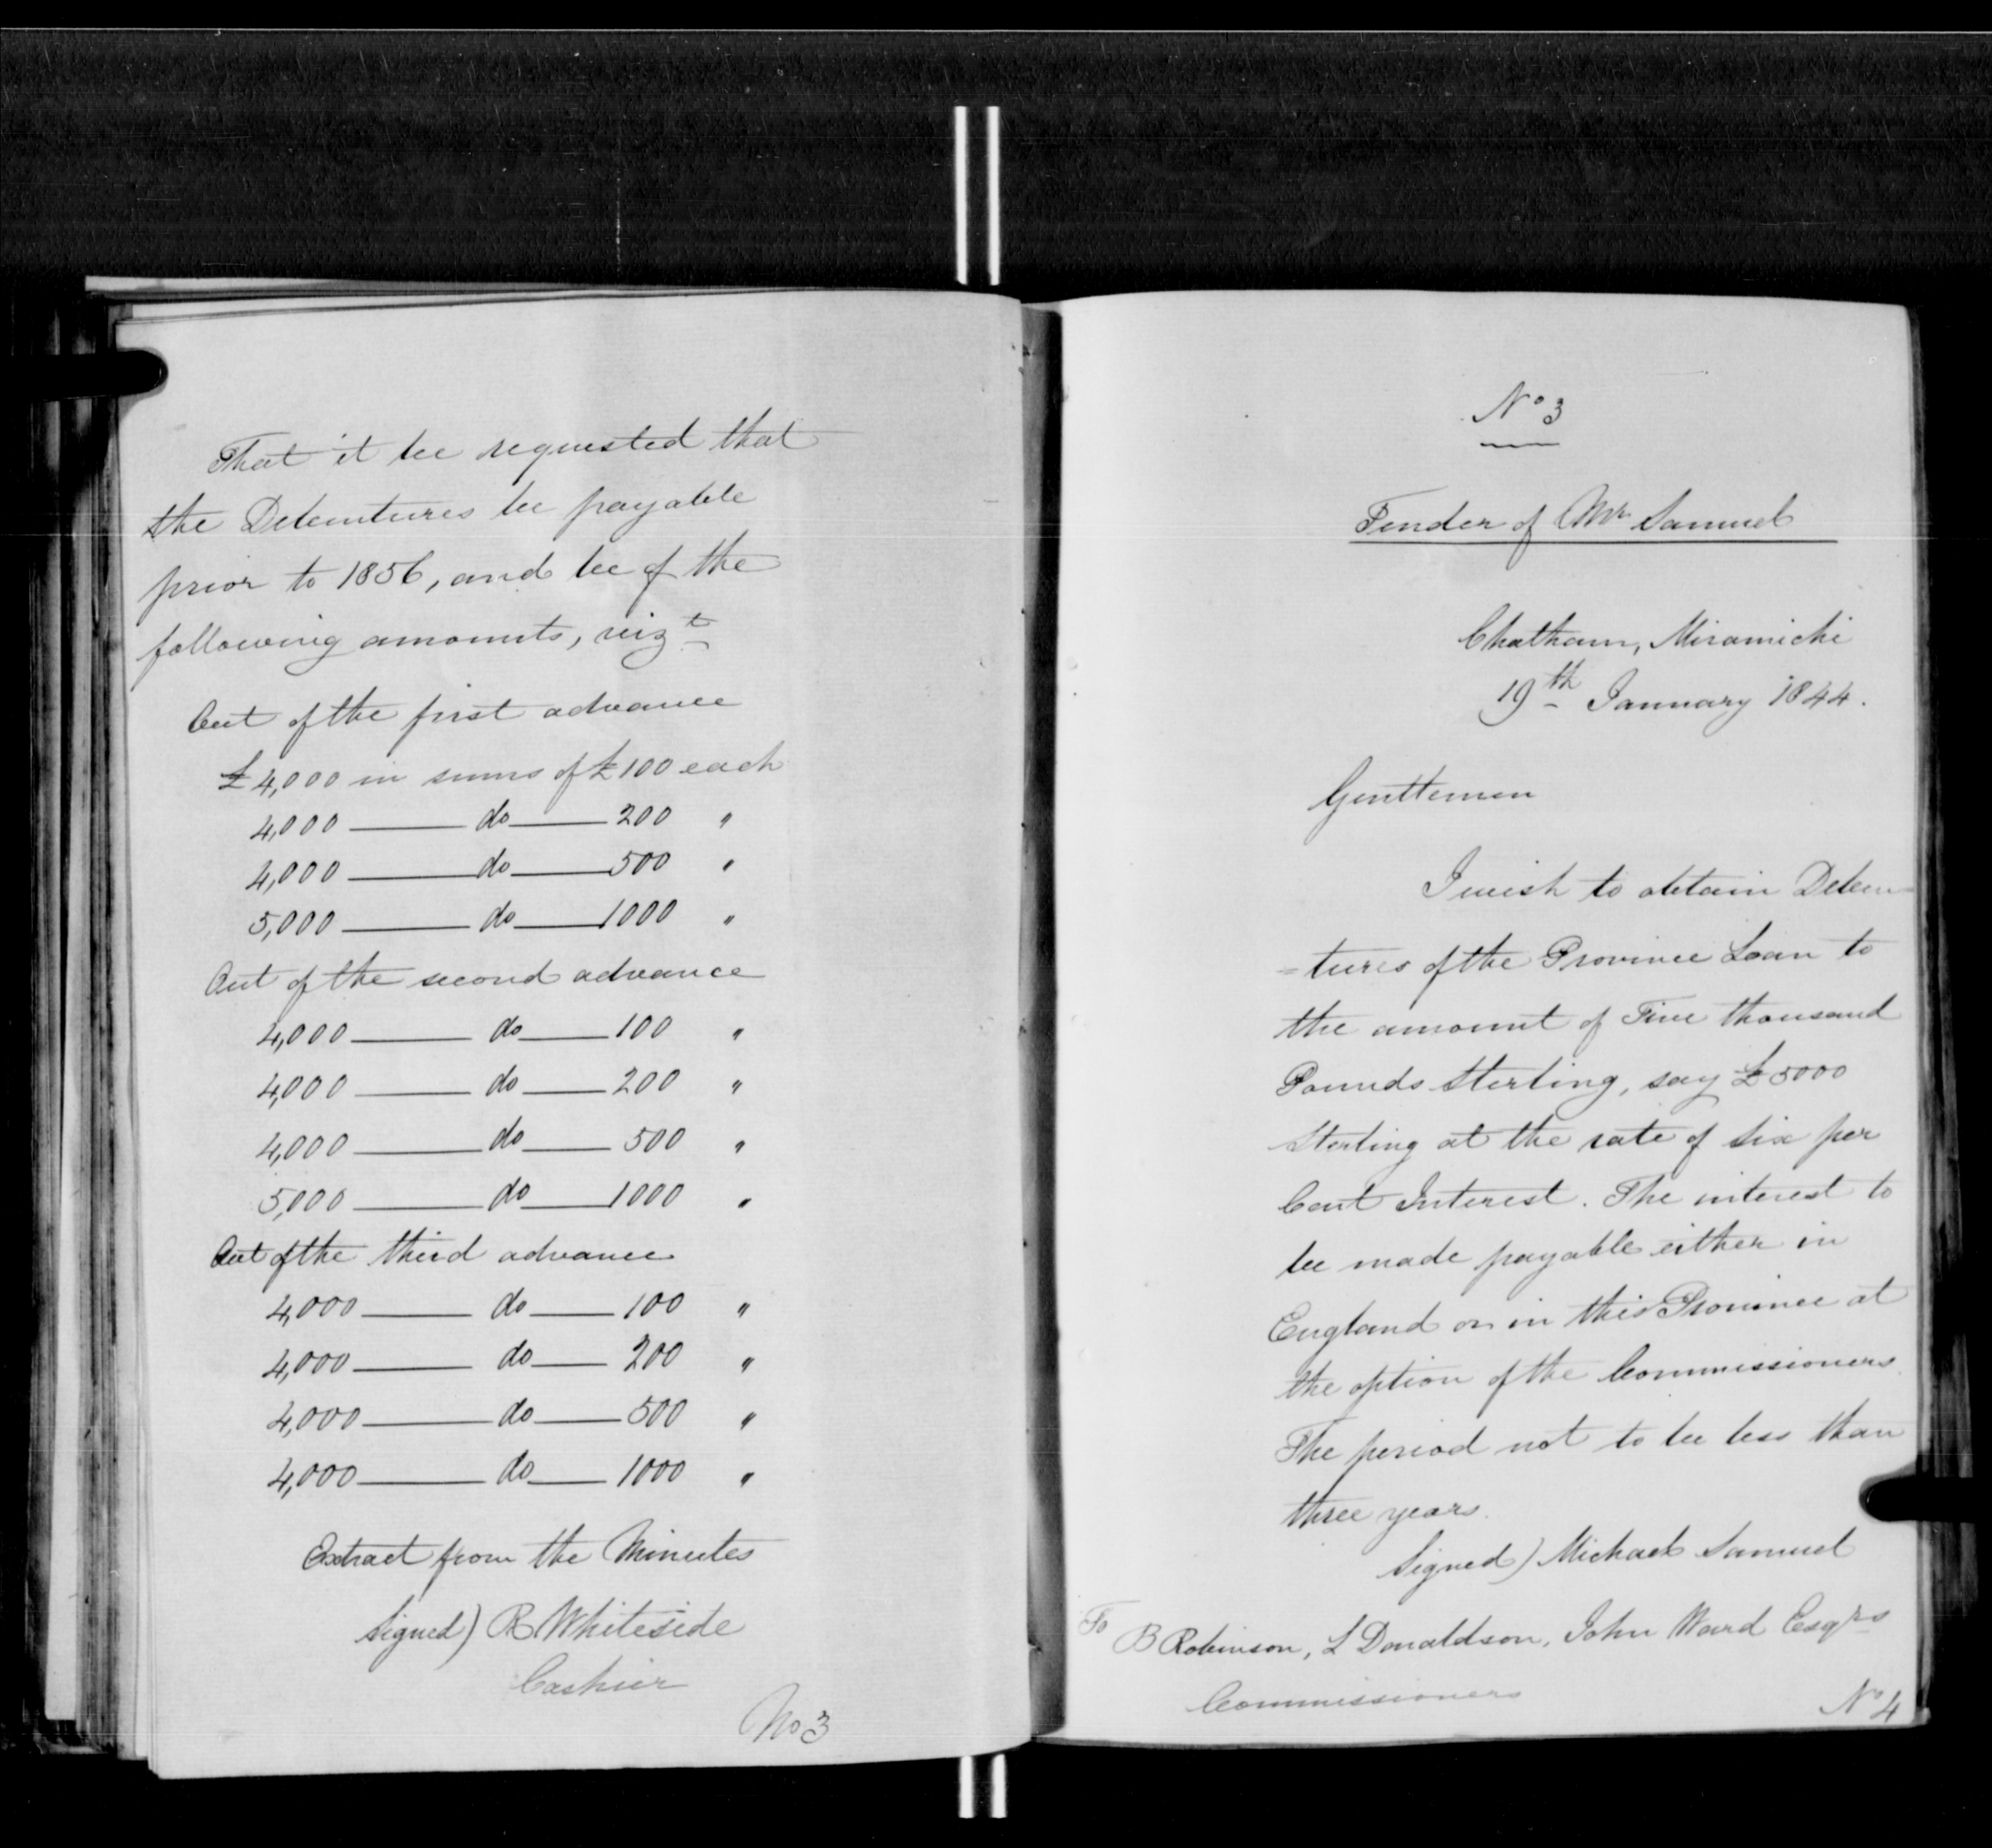 That it be requested that
the Debentures be payable
prior to 1856, and be of the
following amounts, vizt
Out of the first advance
£4,000 in sums of £100 each
4,000 — do — 200 "
4,000 — do — 500 "
5,000 — do — 1000 "
Out of the second advance
4,000 — do — 100 "
4,000 — do — 200 "
4,000 — do — 500 "
5,000 — do — 1000 "
Out of the third advance
4,000 — do — 100 "
4,000 — do — 200 "
4,000 — do — 500 "
4,000 — do — 1000 "
Extract from the Minutes
Signed) R Whiteside
Cashier
No 3
No 3
Tender of Mr Samuel
Chatham, Miramichi
19th January 1844.
Gentlemen
I wish to obtain Deben=
=tures of the Province Loan to
the amount of Five thousand
Pounds Sterling, say £5000
Sterling at the rate of six per
Cent Interest. The interest to
be made payable either in
England or in this Province at
the option of the Commissioners
The period not to be less than
three years.
Signed) Michael Samuel
To
B Robinson, L Donaldson, John Ward Esqrs
Commissioners
No 4